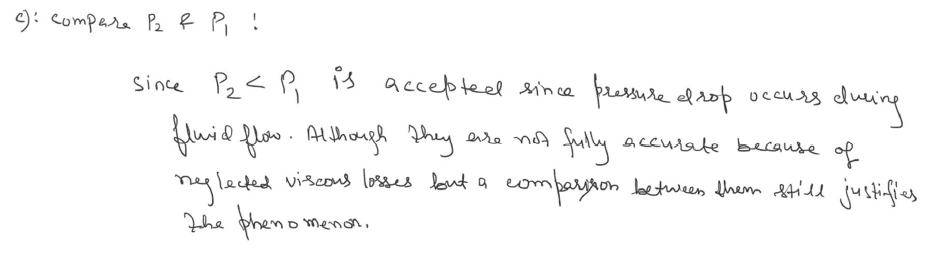 c): compare P₂ & P₁ !
since P₂ < P₁ is accepted since pressure drop occurs during
fluid flow. Although they are not fully accurate because of
neglected viscous losses but a comparison between them still justifies
the phenomenon.